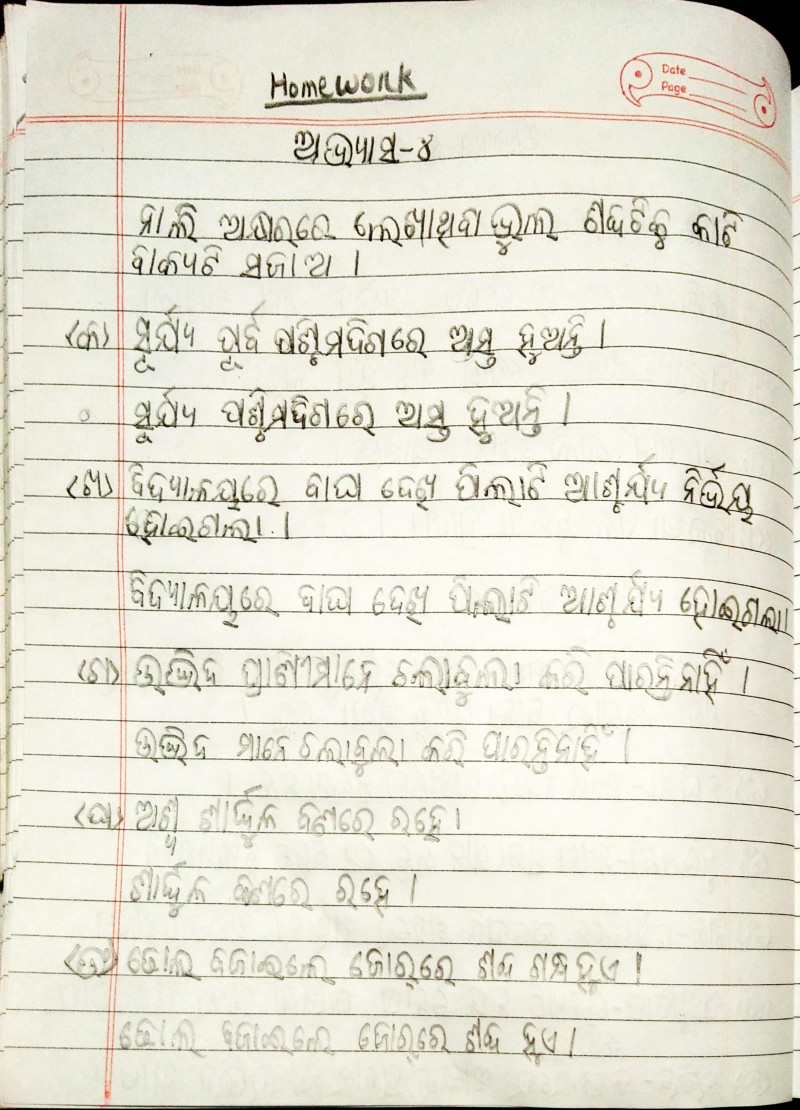 Homework
Date
Page
ଅଭ୍ୟାସ-୪
ନାଲି ଅକ୍ଷରରେ ଲେଖାଥିବା ଭୁଲ ଶବ୍ଦଟିକୁ କାଟି
ବାକ୍ୟଟି ସଜାଅ ।
(କ) ସୂର୍ଯ୍ୟ ପୂର୍ବ ପଶ୍ଚିମଦିଗରେ ଅସ୍ତ ହୁଅନ୍ତି ।
ସୂର୍ଯ୍ୟ ପଶ୍ଚିମଦିଗରେ ଅସ୍ତ ହୁଅନ୍ତି ।
(ଖ) ବିଦ୍ୟାଳୟରେ ବାଘ ଦେଖି ପିଲାଟି ଆଶ୍ଚର୍ଯ୍ୟ ନିର୍ଭୟ
ହୋଇଗଲା ।
ବିଦ୍ୟାଳୟରେ ବାଘ ଦେଖି ପିଲାଟି ଆଶ୍ଚର୍ଯ୍ୟ ହୋଇଗଲା।
(ଗ) ଉଦ୍ଭିଦ ପ୍ରାଣୀମାନେ ଚଲାବୁଲା କରି ପାରନ୍ତିନାହିଁ ।
ଉଦ୍ଭିଦ ମାନେ ଚଲାବୁଲା କରି ପାରନ୍ତିନାହିଁ ।
(ଘ) ଅଶ୍ୱ ଶାର୍ଦ୍ଦୁଳ ବଣରେ ରହେ।
ଶାର୍ଦ୍ଦୁଳ ବଣରେ ରହେ ।
(ଙ) ଢୋଲ ବଜାଇଲେ ଜୋର୍‌ରେ ଶବ୍ଦ ଗନ୍ଧ ହୁଏ ।
ଢୋଲ ବଜାଇଲେ ଜୋର୍‌ରେ ଶବ୍ଦ ହୁଏ ।